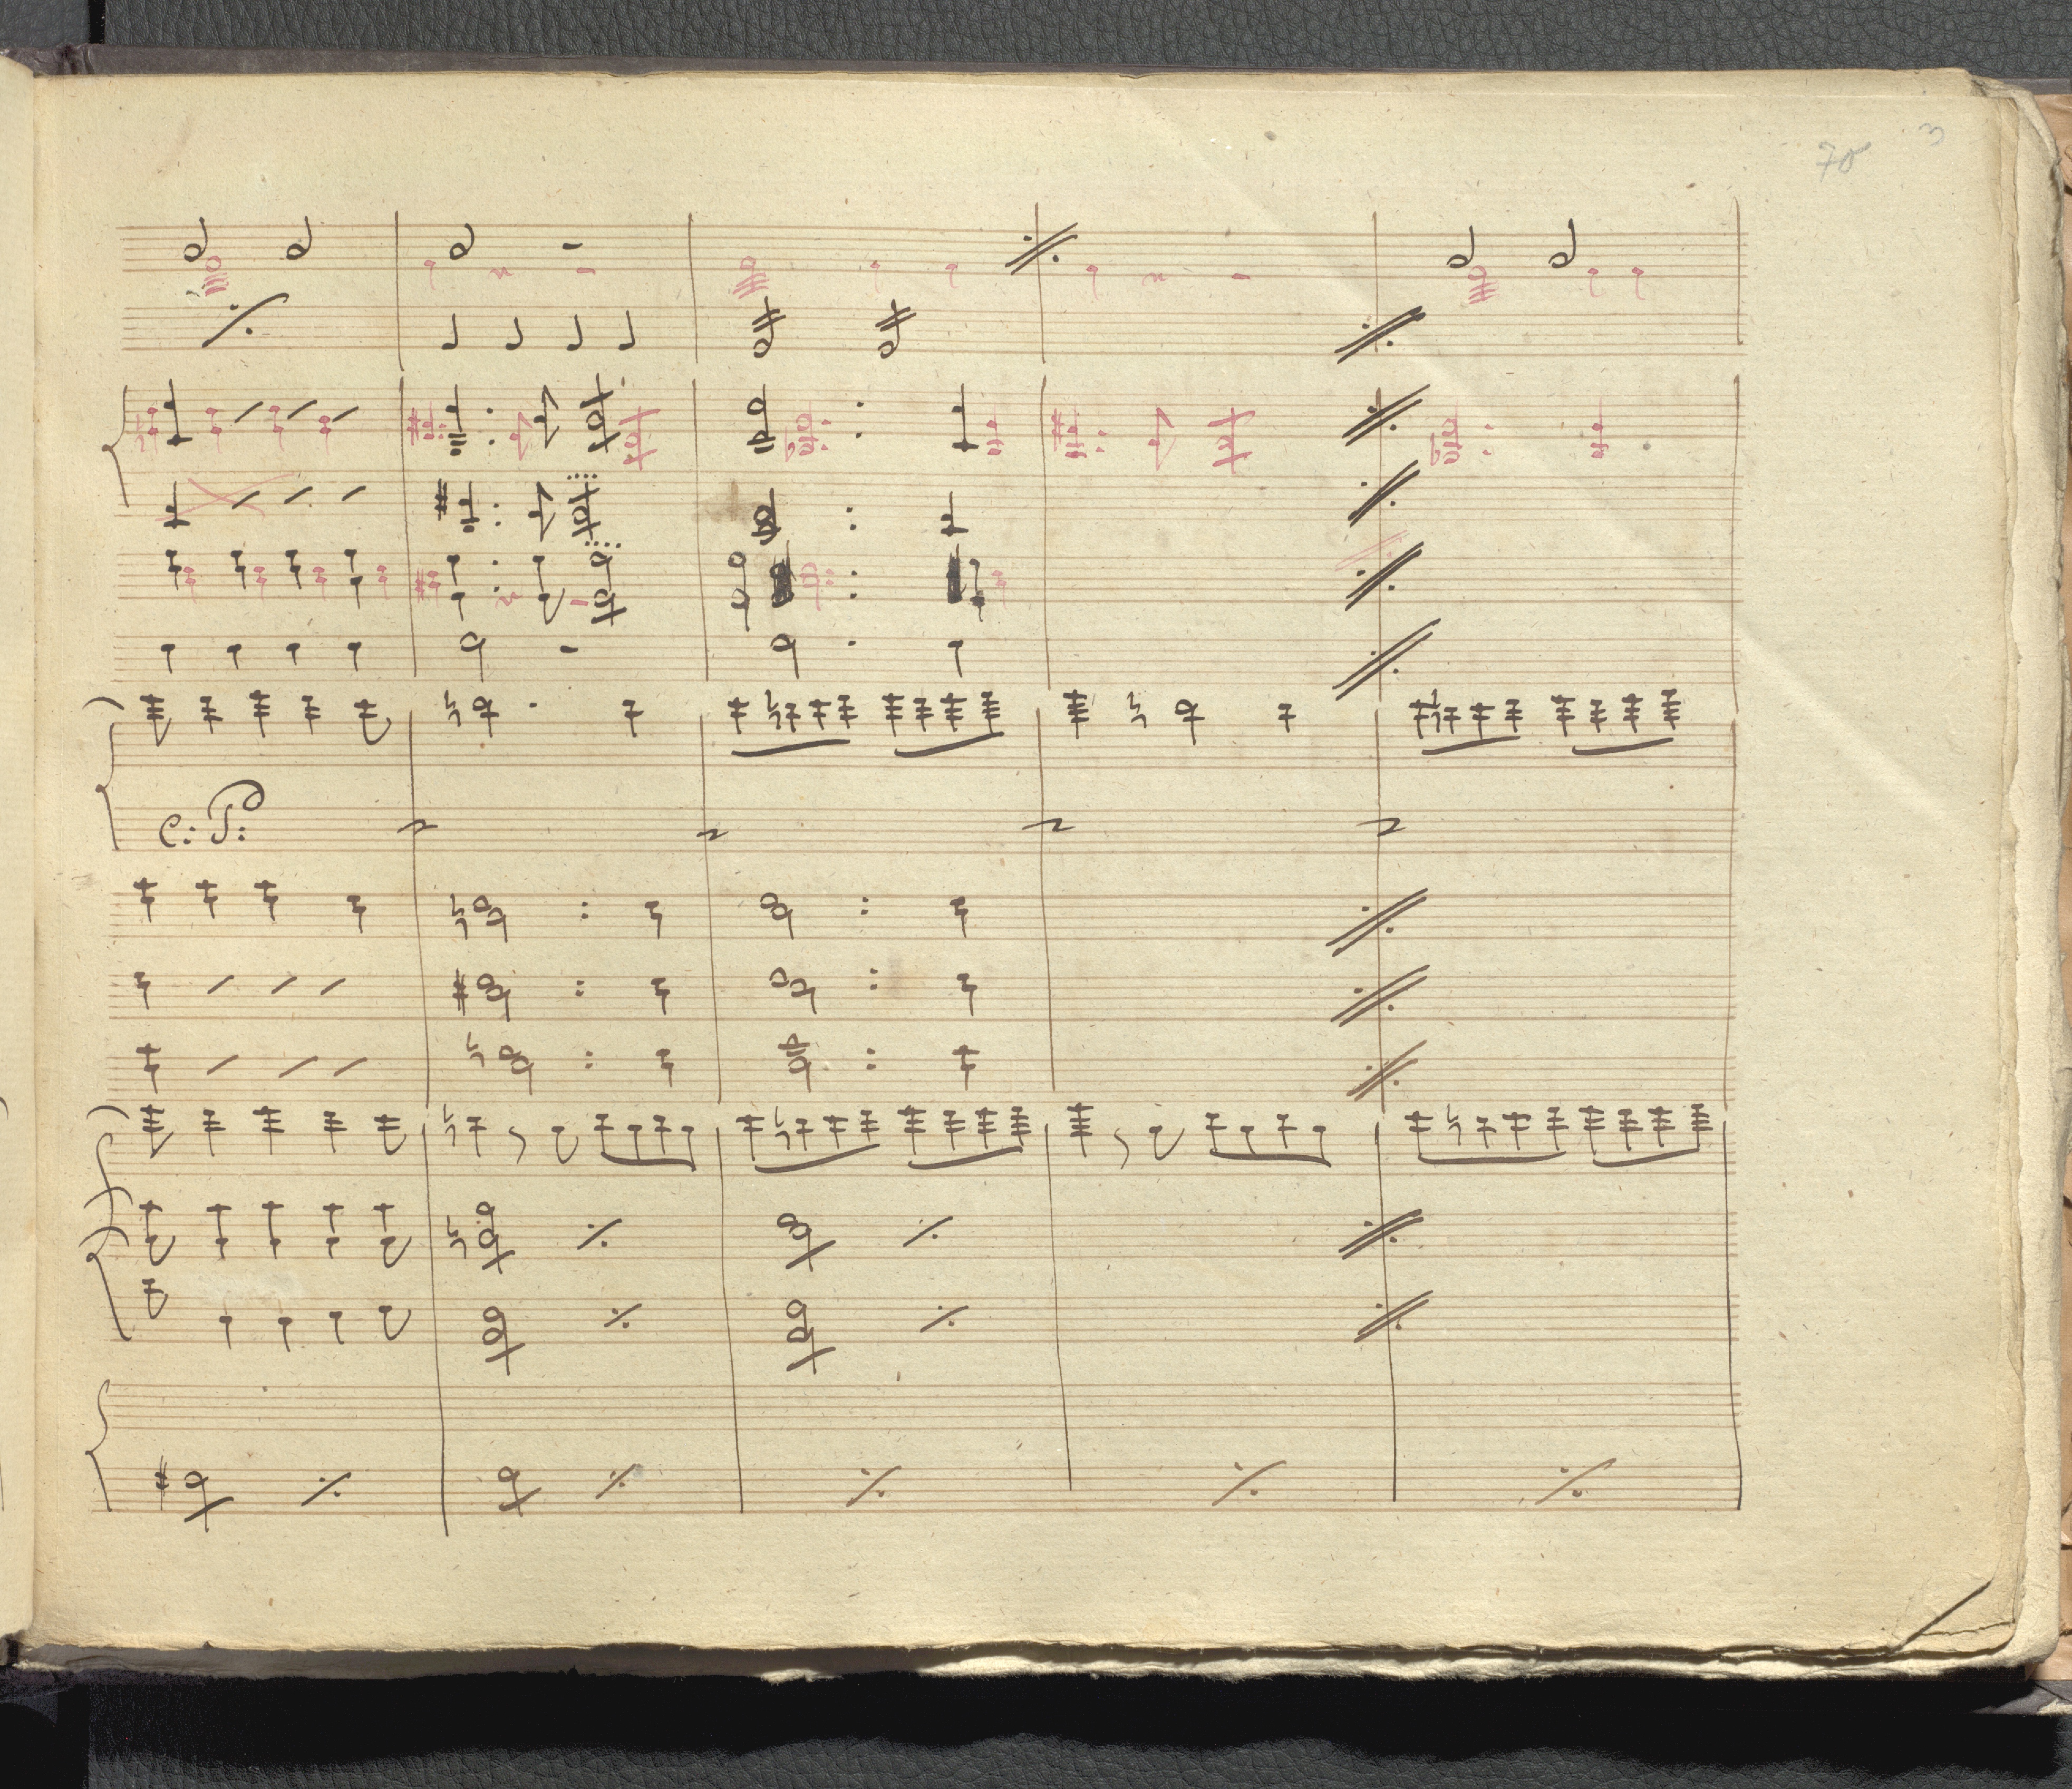 3
70
C: P: